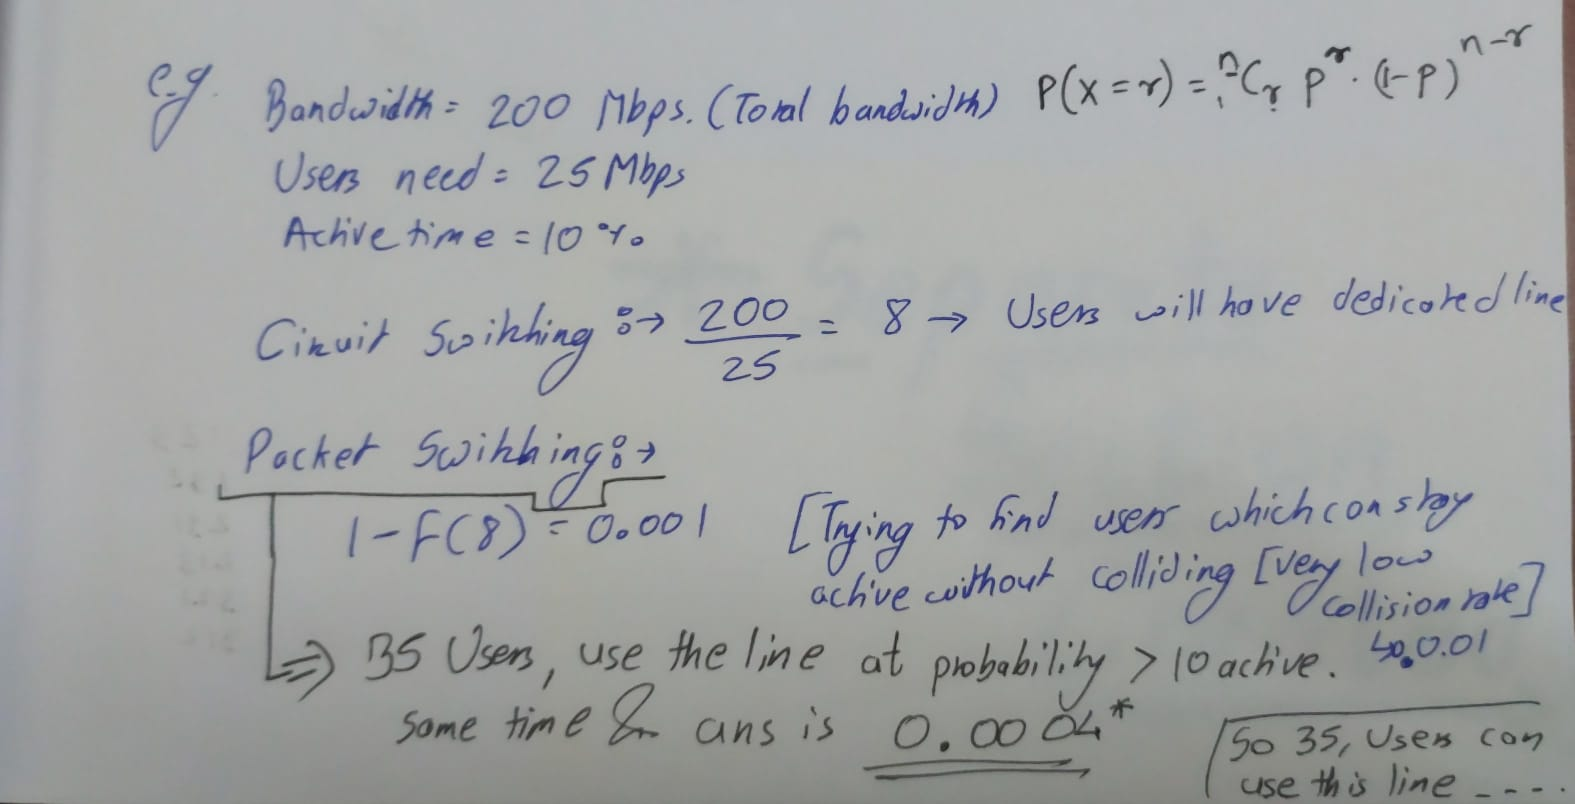 e.g. Bandwidth = 200 Mbps. (Total bandwidth) P(x = r) = ⁿCᵣ pʳ. (1-p)ⁿ⁻ʳ
Users need = 25 Mbps
Active time = 10 %
Circuit Switching :→ 200/25 = 8 → Users will have dedicated line
Packet Switching :→
1-F(8) = 0.001 [Trying to find users which can stay
active without colliding [very low
collision rate]
0.01
⇒ 35 Users, use the line at probability > 10 active.
same time & ans is 0.0004*
So 35, Users can
use this line ----.